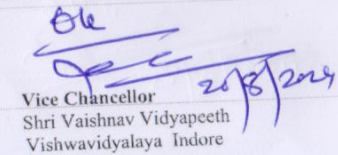 Ok
20/8/2024
Vice Chancellor
Shri Vaishnav Vidyapeeth
Vishwavidyalaya Indore